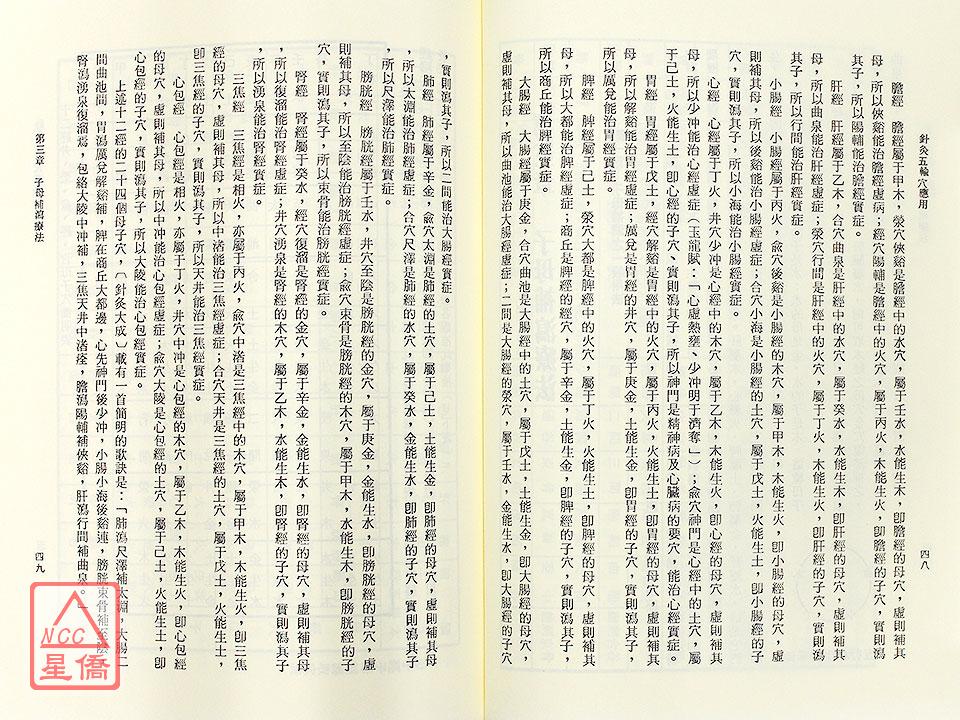 針灸五輸穴應用
四八
膽經　膽經屬于甲木，滎穴俠谿是膽經中的水穴，屬于壬水，水能生木，卽膽經的母穴，虛則補其
母，所以俠谿能治膽經虛病；經穴陽輔是膽經中的火穴，屬于丙火，木能生火，卽膽經的子穴，實則瀉
其子，所以陽輔能治膽經實症。
肝經　肝經屬于乙木，合穴曲泉是肝經中的水穴，屬于癸水，水能生木，卽肝經的母穴，虛則補其
母，所以曲泉能治肝經虛症；滎穴行間是肝經中的火穴，屬于丁火，木能生火，卽肝經的子穴，實則瀉
其子，所以行間能治肝經實症。
小腸經　小腸經屬于丙火，兪穴後谿是小腸經的木穴，屬于甲木，木能生火，卽小腸經的母穴，虛
則補其母，所以後谿能治小腸經虛症；合穴小海是小腸經的土穴，屬于戊土，火能生土，卽小腸經的子
穴，實則瀉其子，所以小海能治小腸經實症。
心經　心經屬于丁火，井穴少冲是心經中的木穴，屬于乙木，木能生火，卽心經的母穴，虛則補其
母，所以少冲能治心經虛症（玉龍賦：「心虛熱壅、少冲明于濟奪」）；兪穴神門是心經中的土穴，屬
于己土，火能生土，卽心經的子穴、實則瀉其子，所以神門是精神病及心臟病的要穴，能治心經實症。
胃經　胃經屬于戊土，經穴解谿是胃經中的火穴，屬于丙火，火能生土，卽胃經的母穴，虛則補其
母，所以解谿能治胃經虛症；厲兌是胃經的井穴，屬于庚金，土能生金，卽胃經的子穴，實則瀉其子，
所以厲兌能治胃經實症。
脾經　脾經屬于己土，滎穴大都是脾經中的火穴，屬于丁火，火能生土，卽脾經的母穴，虛則補其
母，所以大都能治脾經虛症；商丘是脾經的經穴，屬于辛金，土能生金，卽脾經的子穴，實則瀉其子，
所以商丘能治脾經實症。
大腸經　大腸經屬于庚金，合穴曲池是大腸經中的土穴，屬于戊土，土能生金，卽大腸經的母穴，
虛則補其母，所以曲池能治大腸經虛症；二間是大腸經的滎穴，屬于壬水，金能生水，卽大腸經的子穴
，實則瀉其子，所以二間能治大腸經實症。
肺經　肺經屬于辛金，兪穴太淵是肺經的土穴，屬于己土，土能生金，卽肺經的母穴，虛則補其母
，所以太淵能治肺經虛症；合穴尺澤是肺經的水穴，屬于癸水，金能生水，卽肺經的子穴，實則瀉其子
，所以尺澤能治肺經實症。
膀胱經　膀胱經屬于壬水，井穴至陰是膀胱經的金穴，屬于庚金，金能生水，卽膀胱經的母穴，虛
則補其母，所以至陰能治膀胱經虛症；兪穴束骨是膀胱經的木穴，屬于甲木，水能生木，卽膀胱經的子
穴，實則瀉其子，所以束骨能治膀胱經實症。
腎經　腎經屬于癸水，經穴復溜是腎經的金穴，屬于辛金，金能生水，卽腎經的母穴，虛則補其母
，所以復溜能治腎經虛症；井穴湧泉是腎經的木穴，屬于乙木，水能生木，卽腎經的子穴，實則瀉其子
，所以湧泉能治腎經實症。
三焦經　三焦經是相火，亦屬于丙火，兪穴中渚是三焦經中的木穴，屬于甲木，木能生火，卽三焦
經的母穴，虛則補其母，所以中渚能治三焦經虛症；合穴天井是三焦經的土穴，屬于戊土，火能生土，
卽三焦經的子穴，實則瀉其子，所以天井能治三焦經實症。
心包經　心包經是相火，亦屬于丁火，井穴中冲是心包經的木穴，屬于乙木，木能生火，卽心包經
的母穴，虛則補其母，所以中冲能治心包經虛症；兪穴大陵是心包經的土穴，屬于己土，火能生土，卽
心包經的子穴，實則瀉其子，所以大陵能治心包經實症。
上述十二經的二十四個母子穴，（針灸大成）載有一首簡明的歌訣是：「肺瀉尺澤補太淵，大腸二
間曲池間，胃瀉厲兌解谿補，脾在商丘大都邊，心先神門後少冲，小腸小海後谿連，膀胱束骨補至陰
腎瀉湧泉復溜焉，包絡大陵中冲補，三焦天井中渚痊，膽瀉陽輔補俠谿，肝瀉行間補曲泉。」
第三章　子母補瀉療法
四九
NCC
星僑